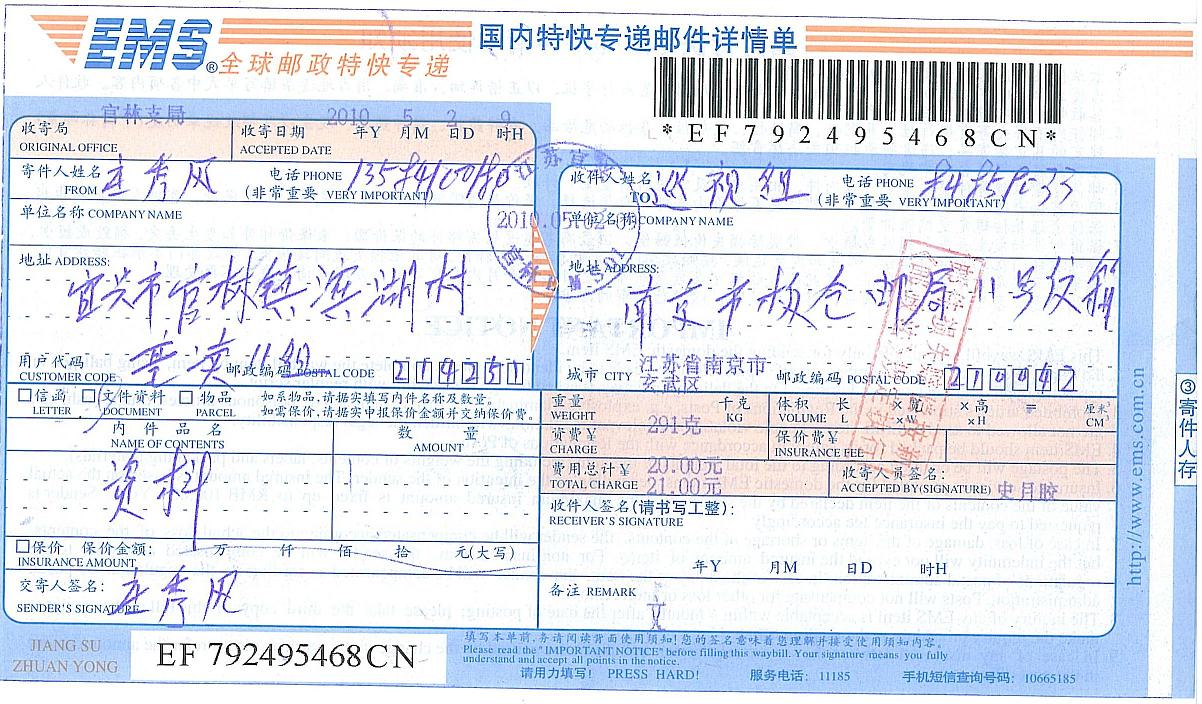 EMS® 全球邮政特快专递
国内特快专递邮件详情单
*EF792495468CN*
收寄局 官林支局 收寄日期 2010 5 2 9 年Y 月M 日D 时H
ORIGINAL OFFICE ACCEPTED DATE
寄件人姓名 秀风 电话 PHONE
FROM (非常重要 VERY IMPORTANT)
收件人姓名 巡视组 电话 PHONE
TO (非常重要 VERY IMPORTANT)
单位名称 COMPANY NAME
单位名称 COMPANY NAME
2010.05.02
地址 ADDRESS:
宜兴市官林镇滨湖村
地址 ADDRESS:
南京市 邮局11号信箱
用户代码 11组 邮政编码 POSTAL CODE 214251
CUSTOMER CODE
城市 CITY 江苏省南京市玄武区 邮政编码 POSTAL CODE
信函 文件资料 物品 如系物品,请据实填写内件名称及数量。
LETTER DOCUMENT PARCEL 如需保价,请据实申报保价金额并交纳保价费。
内件品名 数量
NAME OF CONTENTS AMOUNT
资料
重量 291克 千克 体积 长 ×宽 ×高 = 厘米³
WEIGHT KG VOLUME L ×H CM³
资费¥ 20.00元 保价费¥
CHARGE INSURANCE FEE
费用总计¥ 21.00元 收寄人员签名:
TOTAL CHARGE ACCEPTED BY(SIGNATURE) 史月胶
收件人签名(请书写工整):
RECEIVER'S SIGNATURE
年Y 月M 日D 时H
保价 保价金额: 万 仟 佰 拾 元(大写)
INSURANCE AMOUNT
交寄人签名: 秀风
SENDER'S SIGNATURE
备注 REMARK
http://www.ems.com.cn
③寄件人存
JIANG SU
ZHUAN YONG
EF 792495468 CN
填写本单前,务请阅读背面使用须知!您的签名意味着您理解并接受使用须知内容。
Please read the "IMPORTANT NOTICE" before filling this waybill. Your signature means you fully
understand and accept all points in the notice.
请用力填写! PRESS HARD! 服务电话: 11185 手机短信查询号码: 10665185